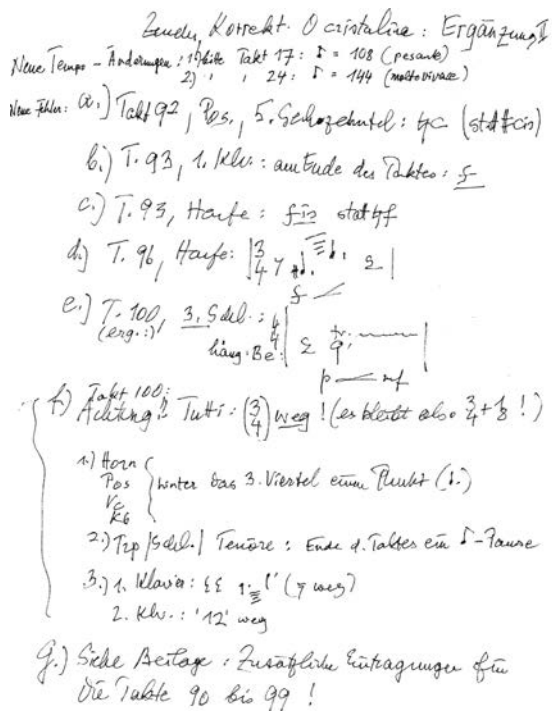 Zender, Korrekt. O cristalina: Ergänzung II
Neue Tempo-Änderungen: 1) bitte Takt 17: ♪ = 108 (pesante)
2) " " 24: ♪ = 144 (molto vivace)
Neue Fehler: a.) Takt 92, Pos., 5. Sechzehntel: ♮c (statt ♯cis)
b.) T. 93, 1. Klv.: am Ende des Taktes: f
c.) T. 93, Harfe: fis statt ♮f
d.) T. 96, Harfe: 3/4
f
e.) T. 100, 3. Schl.: 4/4
(erg.:) häng. Be tr
p mf
f.) Takt 100:
Achtung!! Tutti: (3/4) weg! (es bleibt also 3/4 + 1/8!)
1.) Horn
Pos
Vc
Kb
hinter das 3. Viertel einen Punkt (♩.)
2.) Trp | Schl. | Tenöre: Ende d. Taktes ein ♪-Pause
3.) 1. Klavier: (𝄾 weg)
2. Klv.: '12' weg
g.) Siehe Beilage: Zusätzliche Eintragungen für
die Takte 90 bis 99!